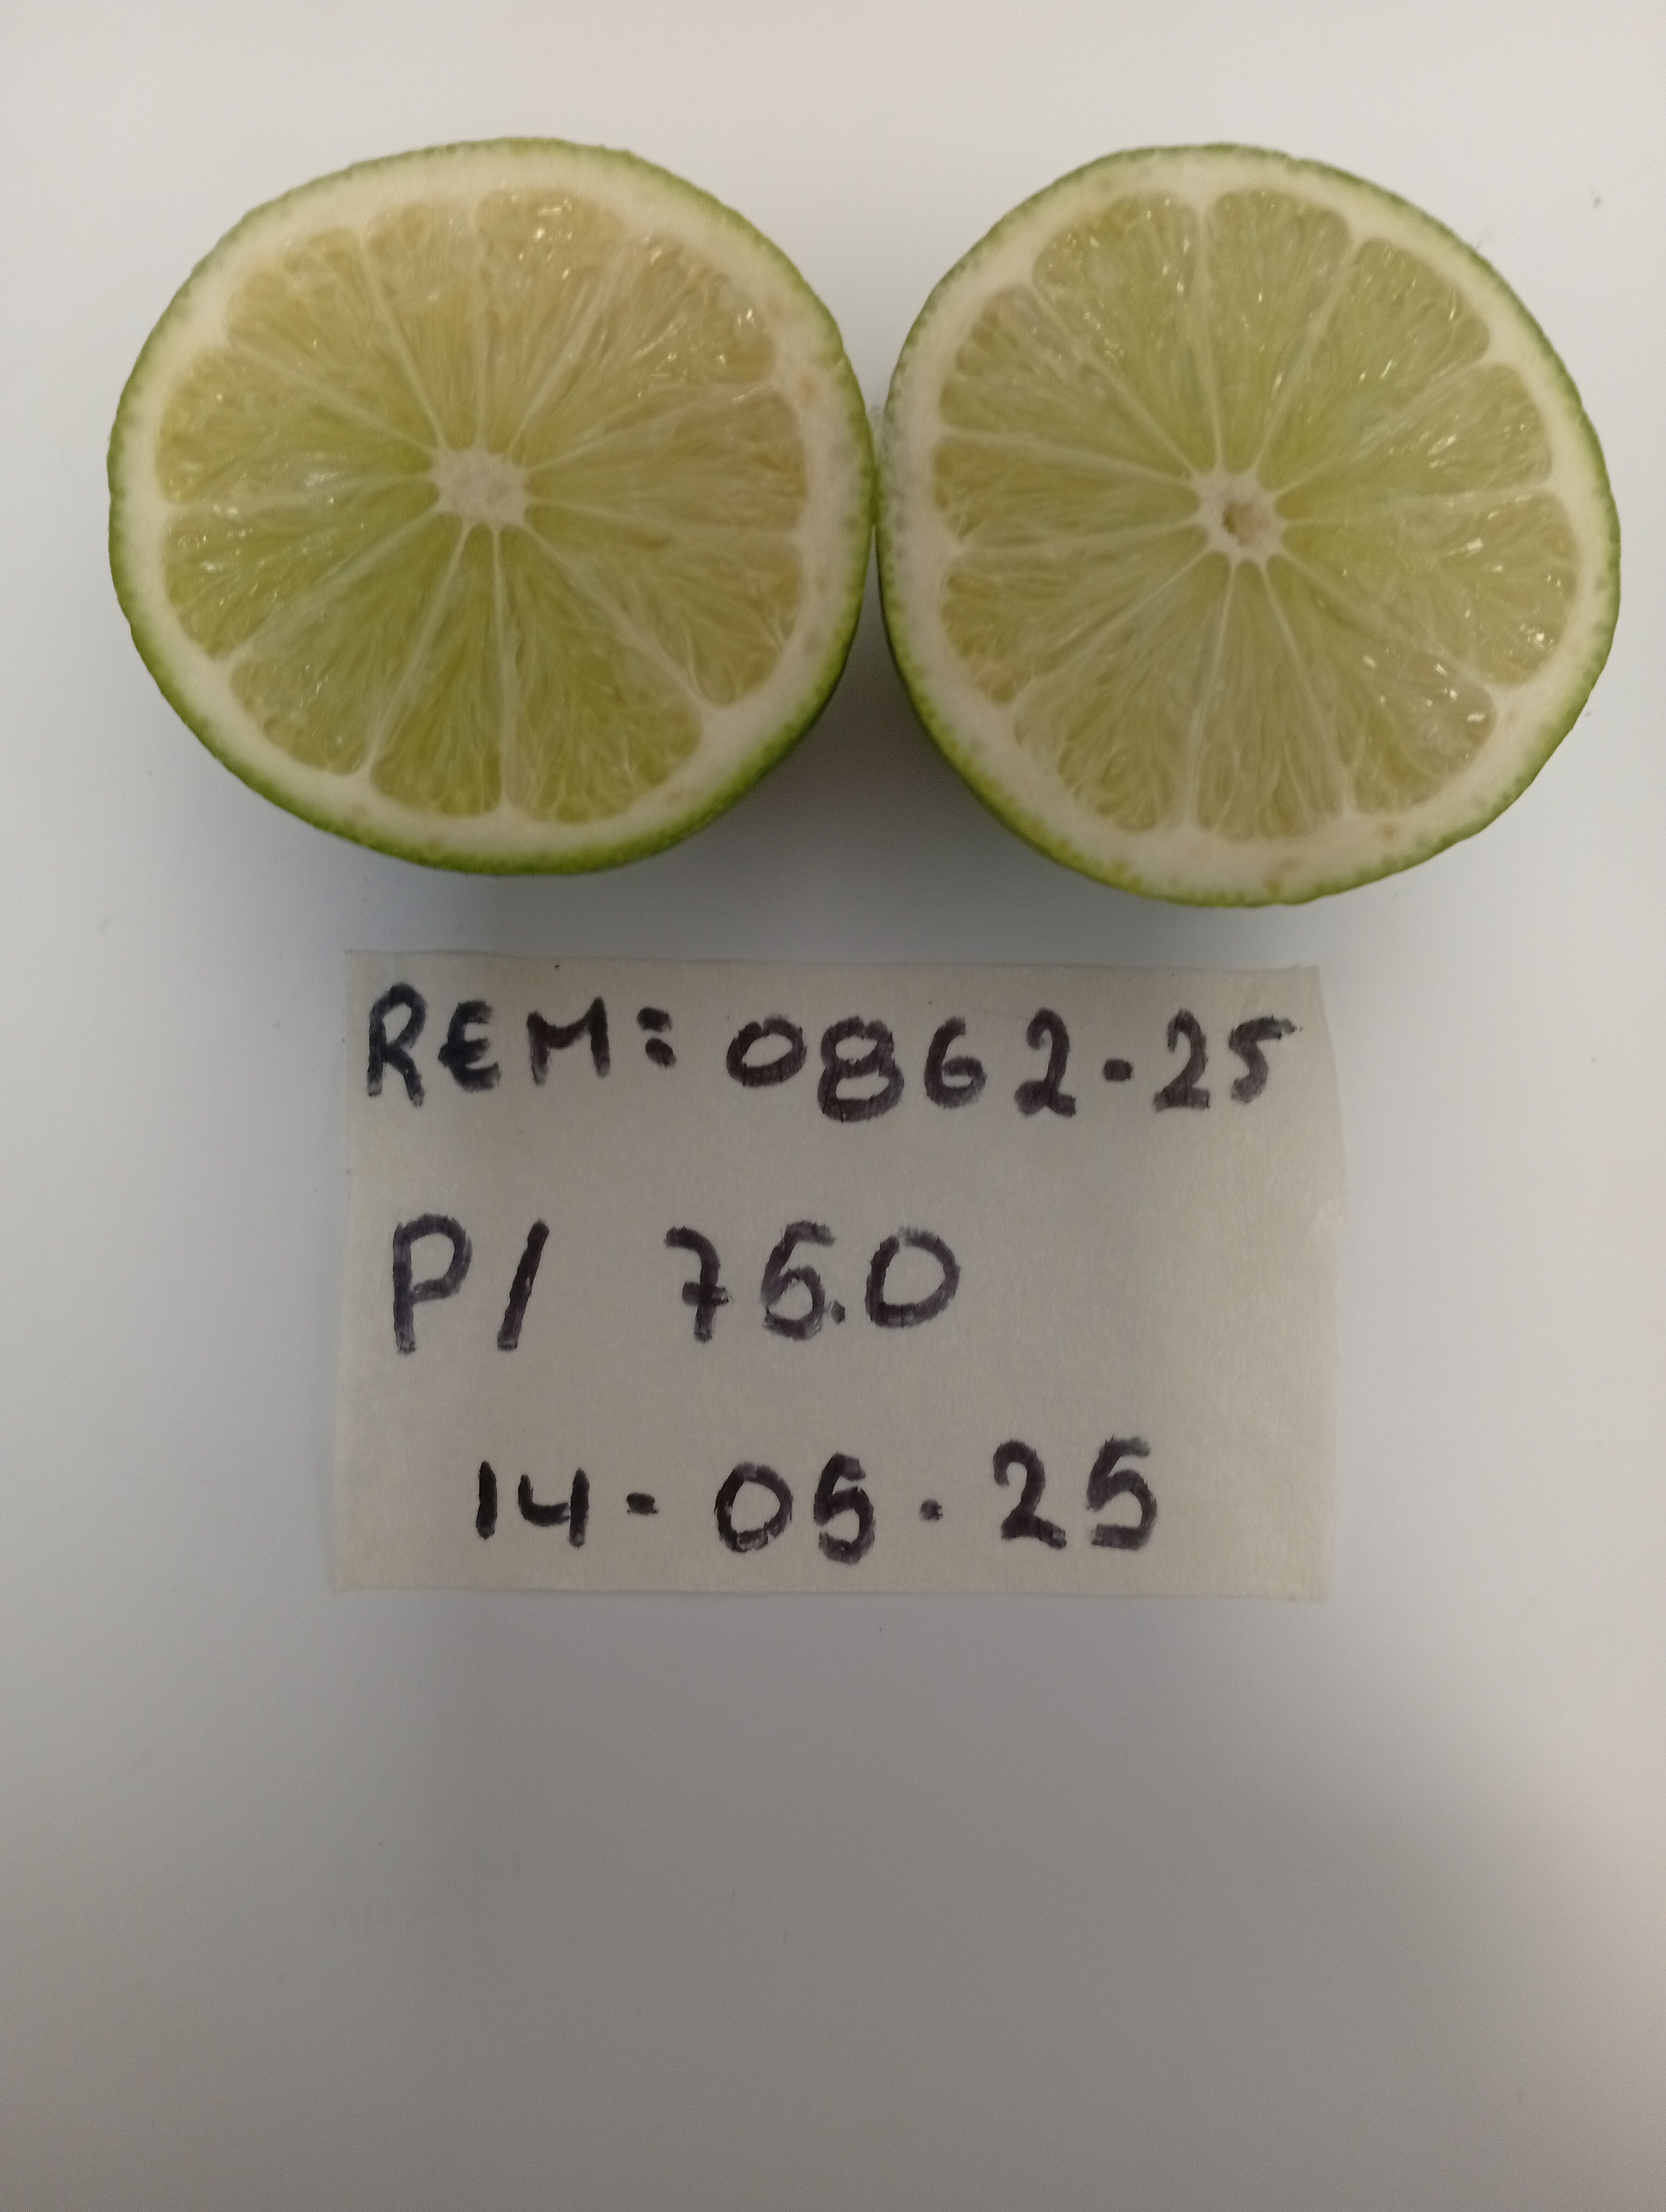 REM: 0862-25
P/ 75.0
14-05-25